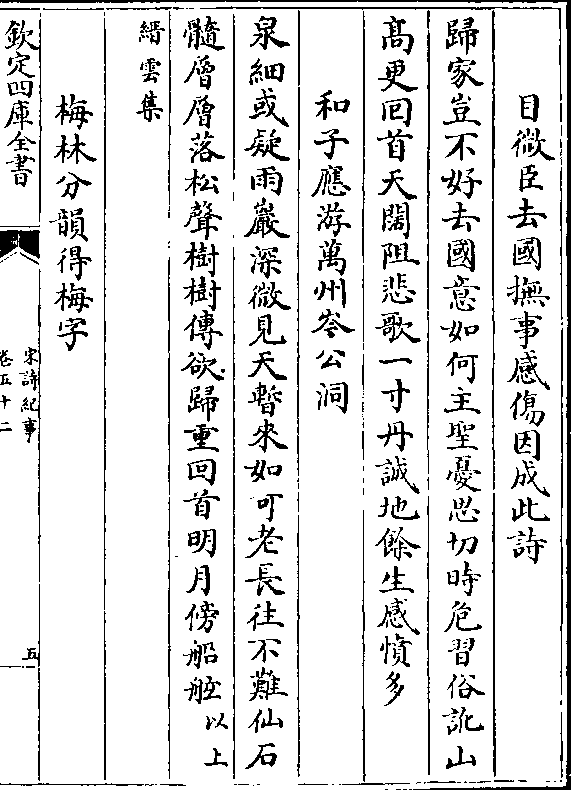 目微臣去國撫事感傷因成此詩
歸家豈不好去國意如何主聖憂思切時危習俗訛山
髙更回首天闊阻悲歌一寸丹誠地餘生感憤多
和子應游萬州岑公洞
泉細或疑雨巖深微見天暫來如可老長往不難仙石
髓層層落松聲樹樹傳欲歸重回首明月傍船舷以上
縉雲集
梅林分韻得梅字
欽定四庫全書
宋詩紀事
卷五十二
五